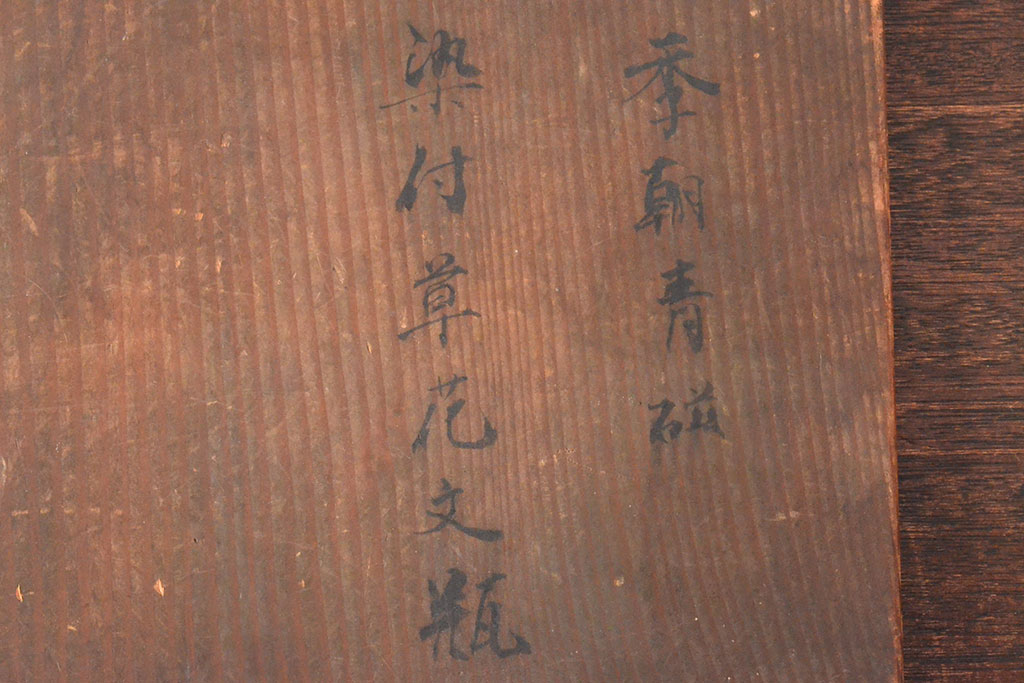 季朝青磁
染付草花文瓶